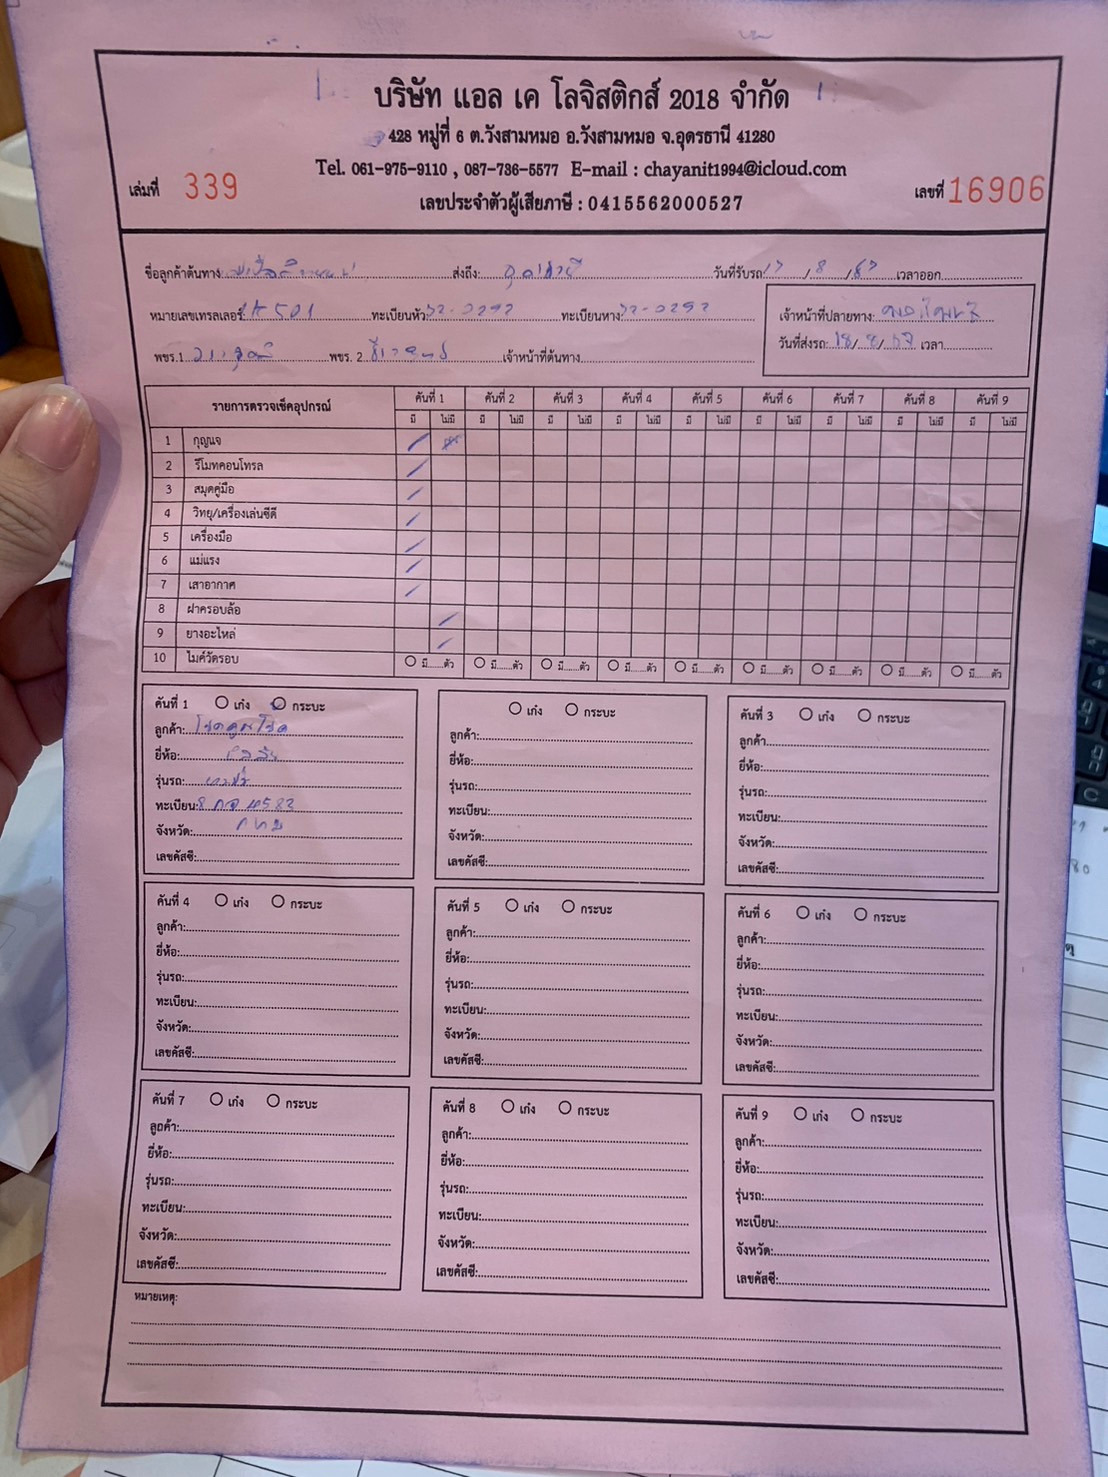 บริษัท แอล เค โลจิสติกส์ 2018 จำกัด
428 หมู่ที่ 6 ต.วังสามหมอ อ.วังสามหมอ จ.อุดรธานี 41280
Tel. 061-975-9110 , 087-736-5577 E-mail : chayanit1994@icloud.com
เล่มที่ 339 เลขที่ 16906
เลขประจำตัวผู้เสียภาษี : 0415562000527
ชื่อลูกค้าต้นทาง: ส่งถึง: วันที่รับรถ 17/8/67 เวลาออก
หมายเลขเทรลเลอร์: LK501 ทะเบียนหัว: 72-0292 ทะเบียนหาง: 72-0293
เจ้าหน้าที่ปลายทาง:
พขร.1 พขร. 2 เจ้าหน้าที่ต้นทาง
วันที่ส่งรถ: 18/8/67 เวลา
รายการตรวจเช็คอุปกรณ์ คันที่ 1 คันที่ 2 คันที่ 3 คันที่ 4 คันที่ 5 คันที่ 6 คันที่ 7 คันที่ 8 คันที่ 9
มี ไม่มี มี ไม่มี มี ไม่มี มี ไม่มี มี ไม่มี มี ไม่มี มี ไม่มี มี ไม่มี มี ไม่มี
1 กุญแจ
2 รีโมทคอนโทรล
3 สมุดคู่มือ
4 วิทยุ/เครื่องเล่นซีดี
5 เครื่องมือ
6 แม่แรง
7 เสาอากาศ
8 ฝาครอบล้อ
9 ยางอะไหล่
10 ไมค์วัดรอบ มี ตัว มี ตัว มี ตัว มี ตัว มี ตัว มี ตัว มี ตัว มี ตัว มี ตัว
คันที่ 1 เก๋ง กระบะ
ลูกค้า:
ยี่ห้อ:
รุ่นรถ:
ทะเบียน: 8กจ 4583
จังหวัด: กทม
เลขคัสซี:
เก๋ง กระบะ
ลูกค้า:
ยี่ห้อ:
รุ่นรถ:
ทะเบียน:
จังหวัด:
เลขคัสซี:
คันที่ 3 เก๋ง กระบะ
ลูกค้า:
ยี่ห้อ:
รุ่นรถ:
ทะเบียน:
จังหวัด:
เลขคัสซี:
คันที่ 4 เก๋ง กระบะ
ลูกค้า:
ยี่ห้อ:
รุ่นรถ:
ทะเบียน:
จังหวัด:
เลขคัสซี:
คันที่ 5 เก๋ง กระบะ
ลูกค้า:
ยี่ห้อ:
รุ่นรถ:
ทะเบียน:
จังหวัด:
เลขคัสซี:
คันที่ 6 เก๋ง กระบะ
ลูกค้า:
ยี่ห้อ:
รุ่นรถ:
ทะเบียน:
จังหวัด:
เลขคัสซี:
คันที่ 7 เก๋ง กระบะ
ลูกค้า:
ยี่ห้อ:
รุ่นรถ:
ทะเบียน:
จังหวัด:
เลขคัสซี:
คันที่ 8 เก๋ง กระบะ
ลูกค้า:
ยี่ห้อ:
รุ่นรถ:
ทะเบียน:
จังหวัด:
เลขคัสซี:
คันที่ 9 เก๋ง กระบะ
ลูกค้า:
ยี่ห้อ:
รุ่นรถ:
ทะเบียน:
จังหวัด:
เลขคัสซี:
หมายเหตุ: